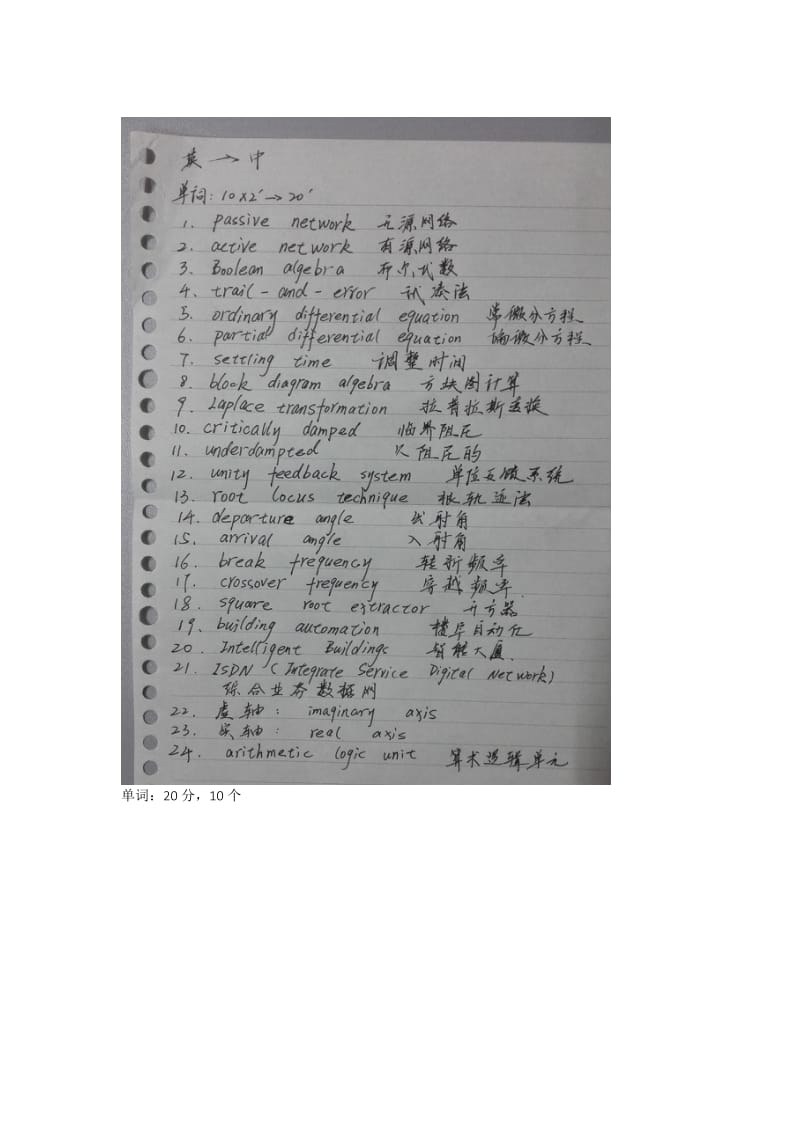 英→中
单词：10×2′→20′
1. passive network 无源网络
2. active network 有源网络
3. Boolean algebra 布尔代数
4. trail-and-error 试凑法
5. ordinary differential equation 常微分方程
6. partial differential equation 偏微分方程
7. settling time 调整时间
8. block diagram algebra 方块图计算
9. Laplace transformation 拉普拉斯变换
10. critically damped 临界阻尼
11. underdampted 欠阻尼的
12. unity feedback system 单位反馈系统
13. root locus technique 根轨迹法
14. departure angle 出射角
15. arrival angle 入射角
16. break frequency 转折频率
17. crossover frequency 穿越频率.
18. square root extractor 开方器
19. building automation 楼宇自动化
20. Intelligent Buildings 智能大厦.
21. ISDN (Integrate Service Digital Network)
综合业务数据网
22. 虚轴: imaginary axis
23. 实轴: real axis
24. arithmetic logic unit 算术逻辑单元
单词：20 分，10 个